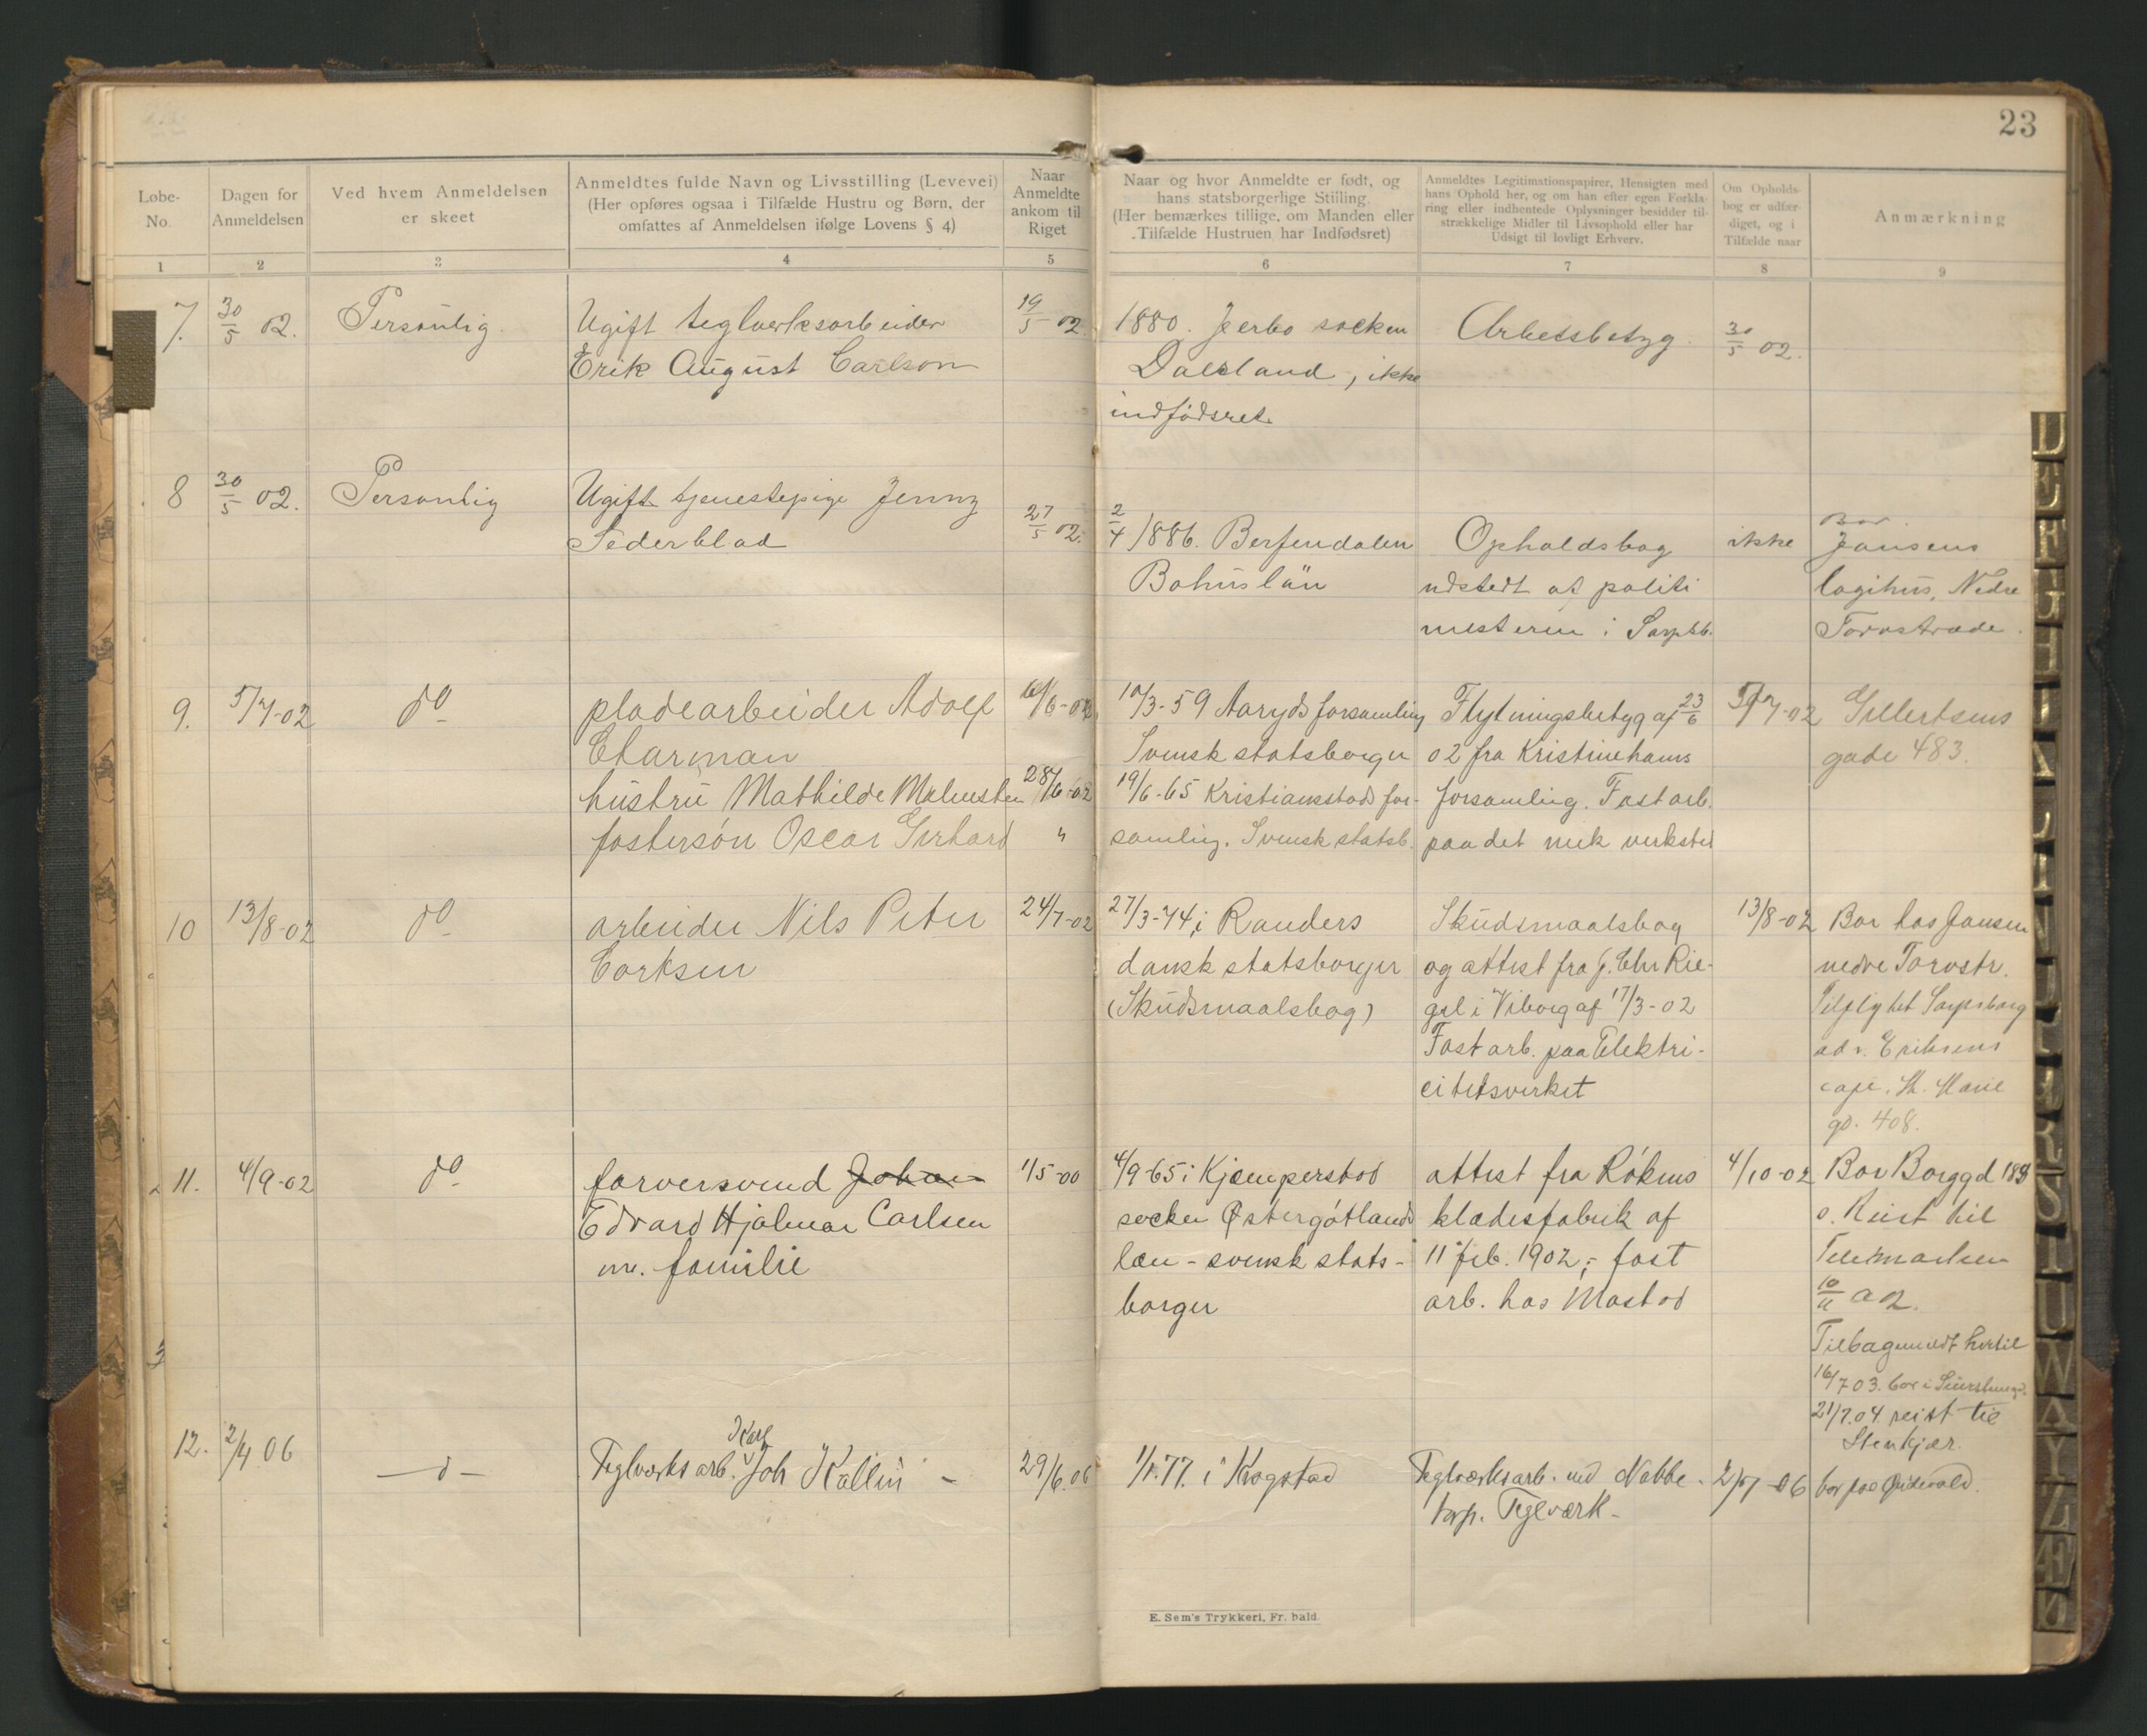 23
Løbe-
No.
Dagen for
Anmeldelsen
Ved hvem Anmeldelsen
er skeet
Anmeldtes fulde Navn og Livsstilling (Levevei)
(Her opføres ogsaa i Tilfælde Hustru og Børn, der
omfattes af Anmeldelsen ifølge Lovens § 4)
Naar
Anmeldte
ankom til
Riget
Naar og hvor Anmeldte er født, og
hans statsborgerlige Stilling.
(Her bemærkes tillige, om Manden eller
.Tilfælde Hustruen har Indfødsret)
Anmeldtes Legitimationspapirer, Hensigten med
hans Ophold her, og om han efter egen Forkla-
ring eller indhentede Oplysninger besidder til-
strækkelige Midler til Livsophold eller har
Udsigt til lovligt Erhverv.
Om Opholds-
bog er udfær-
diget, og i
Tilfælde naar
Anmærkning
1 2 3 4 5 6 7 8 9
7. 30/5 02. Personlig. Ugift teglverksarbeider 19/5 02. 1880. Jerbo socken Arbetsbetyg. 30/5 02.
Erik August Carlson Dalsland, ikke
indfødsret.
8 30/5 02. Personlig Ugift tjenestepige Jenny 27/5 02. 2/4 1886. Berfendalen Opholdsbog ikke Bor
Jansens
Sederblad Bohuslän udstedt af politi logihus, Nedre
mesteren i Sarpsb. Torvstræde.
9. 5/7-02 do pladearbeider Adolf /6-02 10/3-59 Aaryds forsamling Flytningsbetyg af 23/6 5/7-02 Gillertsens
Charman Svensk statsborger 02 fra Kristinehams gade 483.
hustru Mathilde Malmsten 28/6-02 19/6-65 Kristiansstads for- forsamling. Fast arb.
fostersøn Oscar Gerhard " samling. Svensk statsb. paa det mek verksted
10 13/8-02 do arbeider Nils Peter 24/7-02 27/3-74 i Randers Skudsmaalsbog 13/8-02 Bor hos Jansen
Corksen dansk statsborger og attest fra J. Chr Rie- nedre Torvstr.
(Skudsmaalsbog) gel i Viborg af 17/3-02 Tilflyttet Sarpsborg
Fast arb. paa Elektri- adr. Eriksens
citetsverket café, St. Marie
gd. 408.
11. 4/9-02 do farversvend Johan 1/5-00 4/9-65 i Kjæmperstad attest fra Røkens 4/10-02 Bor Borggd 189
Edvard Hjalmar Carlsen socken Østergøtlands klædesfabrik af o. Reist til
m. familie læn - svensk stats- 11 feb. 1902, - fast Telemarken
borger arb. hos Mastad 10/11 02.
Tilbagemeldt hertil
16/7 03. bor i
21/7.04. reist til
Stenkjær.
12. 2/7.06 -d- Teglverksarb. Karl Joh Kallin - 29/6.06 1/1.77. i Krogstad Teglverksarb. ved Nabbe- 2/7-06 bor paa
torp. Teglværk-
E. Sem's Trykkeri, Fr. hald.
D E F G H I K L M N O P R S T U W A Y Z Æ Ø